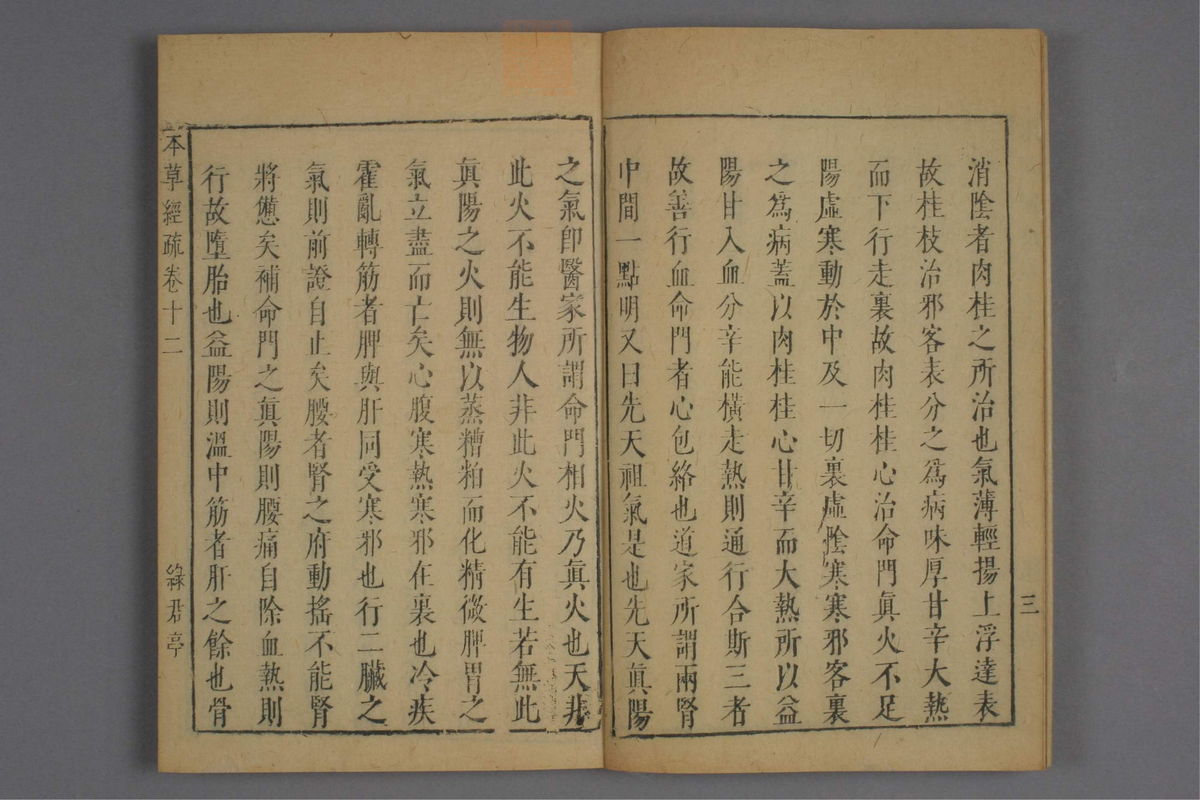 三
消陰者肉桂之所治也氣薄輕揚上浮達表
故桂枝治邪客表分之為病味厚甘辛大熱
而下行走裏故肉桂桂心治命門眞火不足
陽虛寒動於中及一切裏虛陰寒寒邪客裏
之為病蓋以肉桂桂心甘辛而大熱所以益
陽甘入血分辛能橫走熱則通行合斯三者
故善行血命門者心包絡也道家所謂兩腎
中間一點明又曰先天祖氣是也先天眞陽
之氣卽醫家所謂命門相火乃眞火也天非
此火不能生物人非此火不能有生若無此
眞陽之火則無以蒸糟粕而化精微脾胃之
氣立盡而亡矣心腹寒熱寒邪在裏也冷疾
霍亂轉筋者脾與肝同受寒邪也行二臟之
氣則前證自止矣腰者腎之府動搖不能腎
將憊矣補命門之眞陽則腰痛自除血熱則
行故墮胎也益陽則溫中筋者肝之餘也骨
本草經疏卷十二
綠君亭